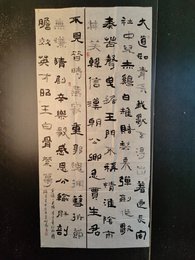 大道如青天我獨不得出羞逐長安
社中兒赤雞白賭梨栗彈劍作歌
奏苦聲曳裾王門不稱情淮陰市
井笑韓信漢朝公卿忌賈生君
不見昔時燕家重郭隗擁篲折節
無嫌猜劇辛樂毅感恩分輸肝剖
膽效英才昭王白骨縈蔓